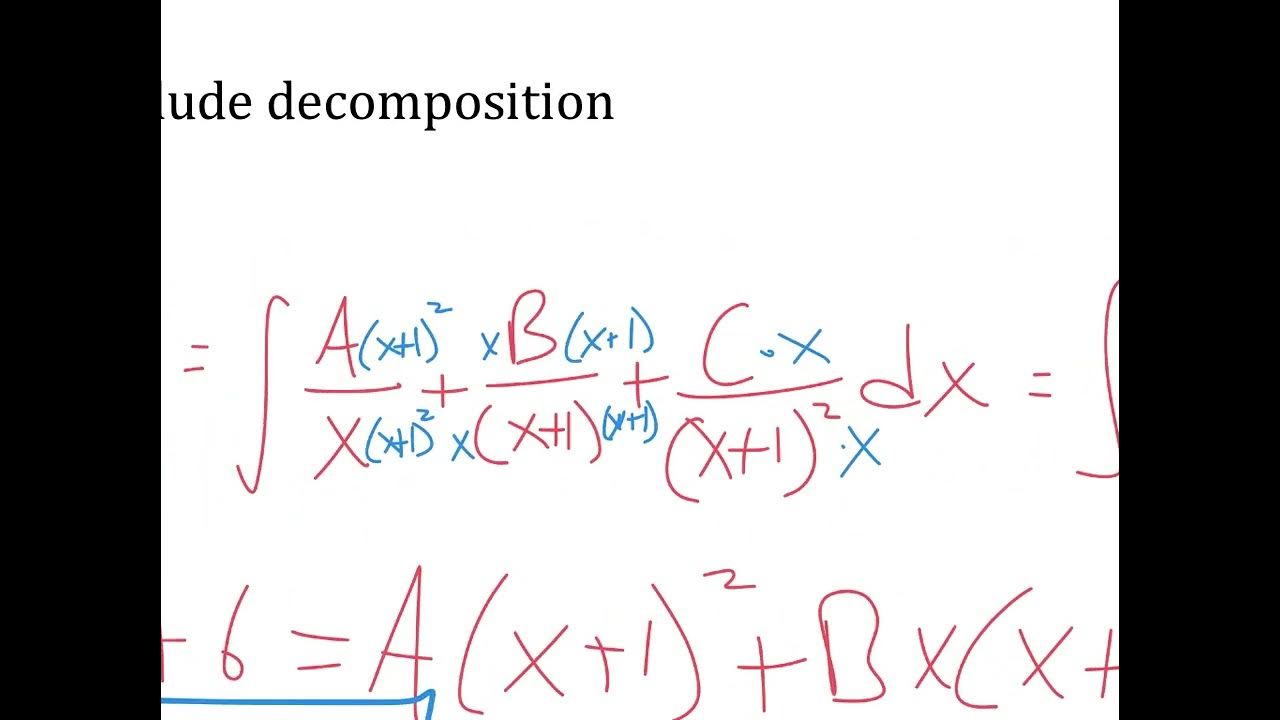 lude decomposition
= ∫ A(x+1)² / x(x+1)² + xB(x+1) / x(x+1)(x+1) + C·x / (x+1)²·x dx = ∫
+ 6 = A(x+1)² + Bx(x+